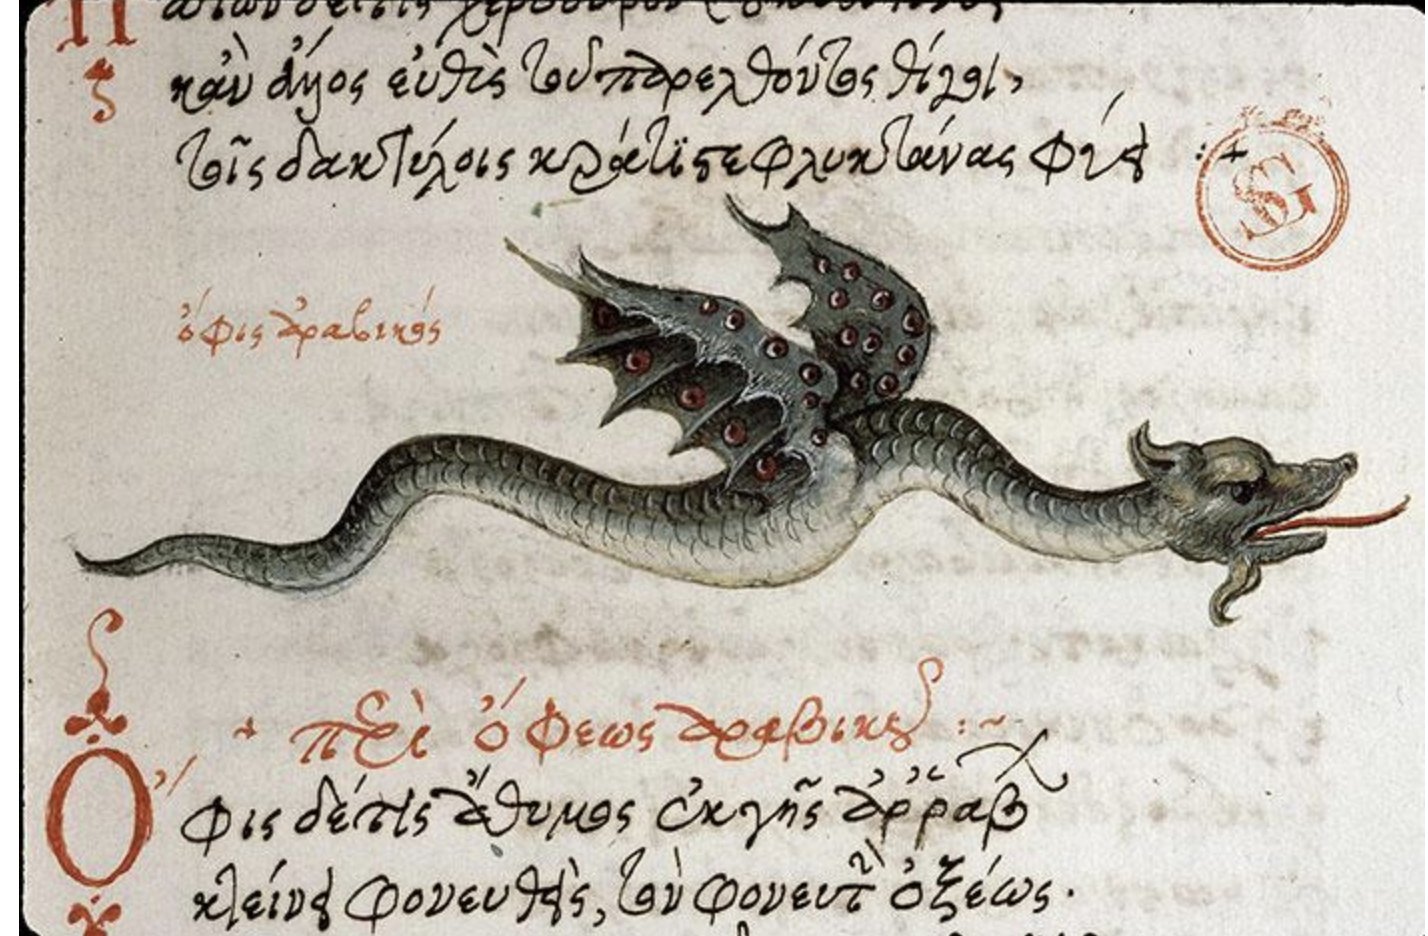 κἂν ἄψος εὐθὺς τοῦ παρελθόντος θίγῃ,
τοῖς δακτύλοις κράτιστε φλυκτάνας φύει :+
SG
ὄφις ἀραβικός
+ περὶ ὄφεως ἀραβικοῦ :~
Ὄφις δέ τις ἄθυμος ἐκ γῆς ἀρράβ
κτείνει φονευθεὶς, τὸν φονευτ ὀξέως.